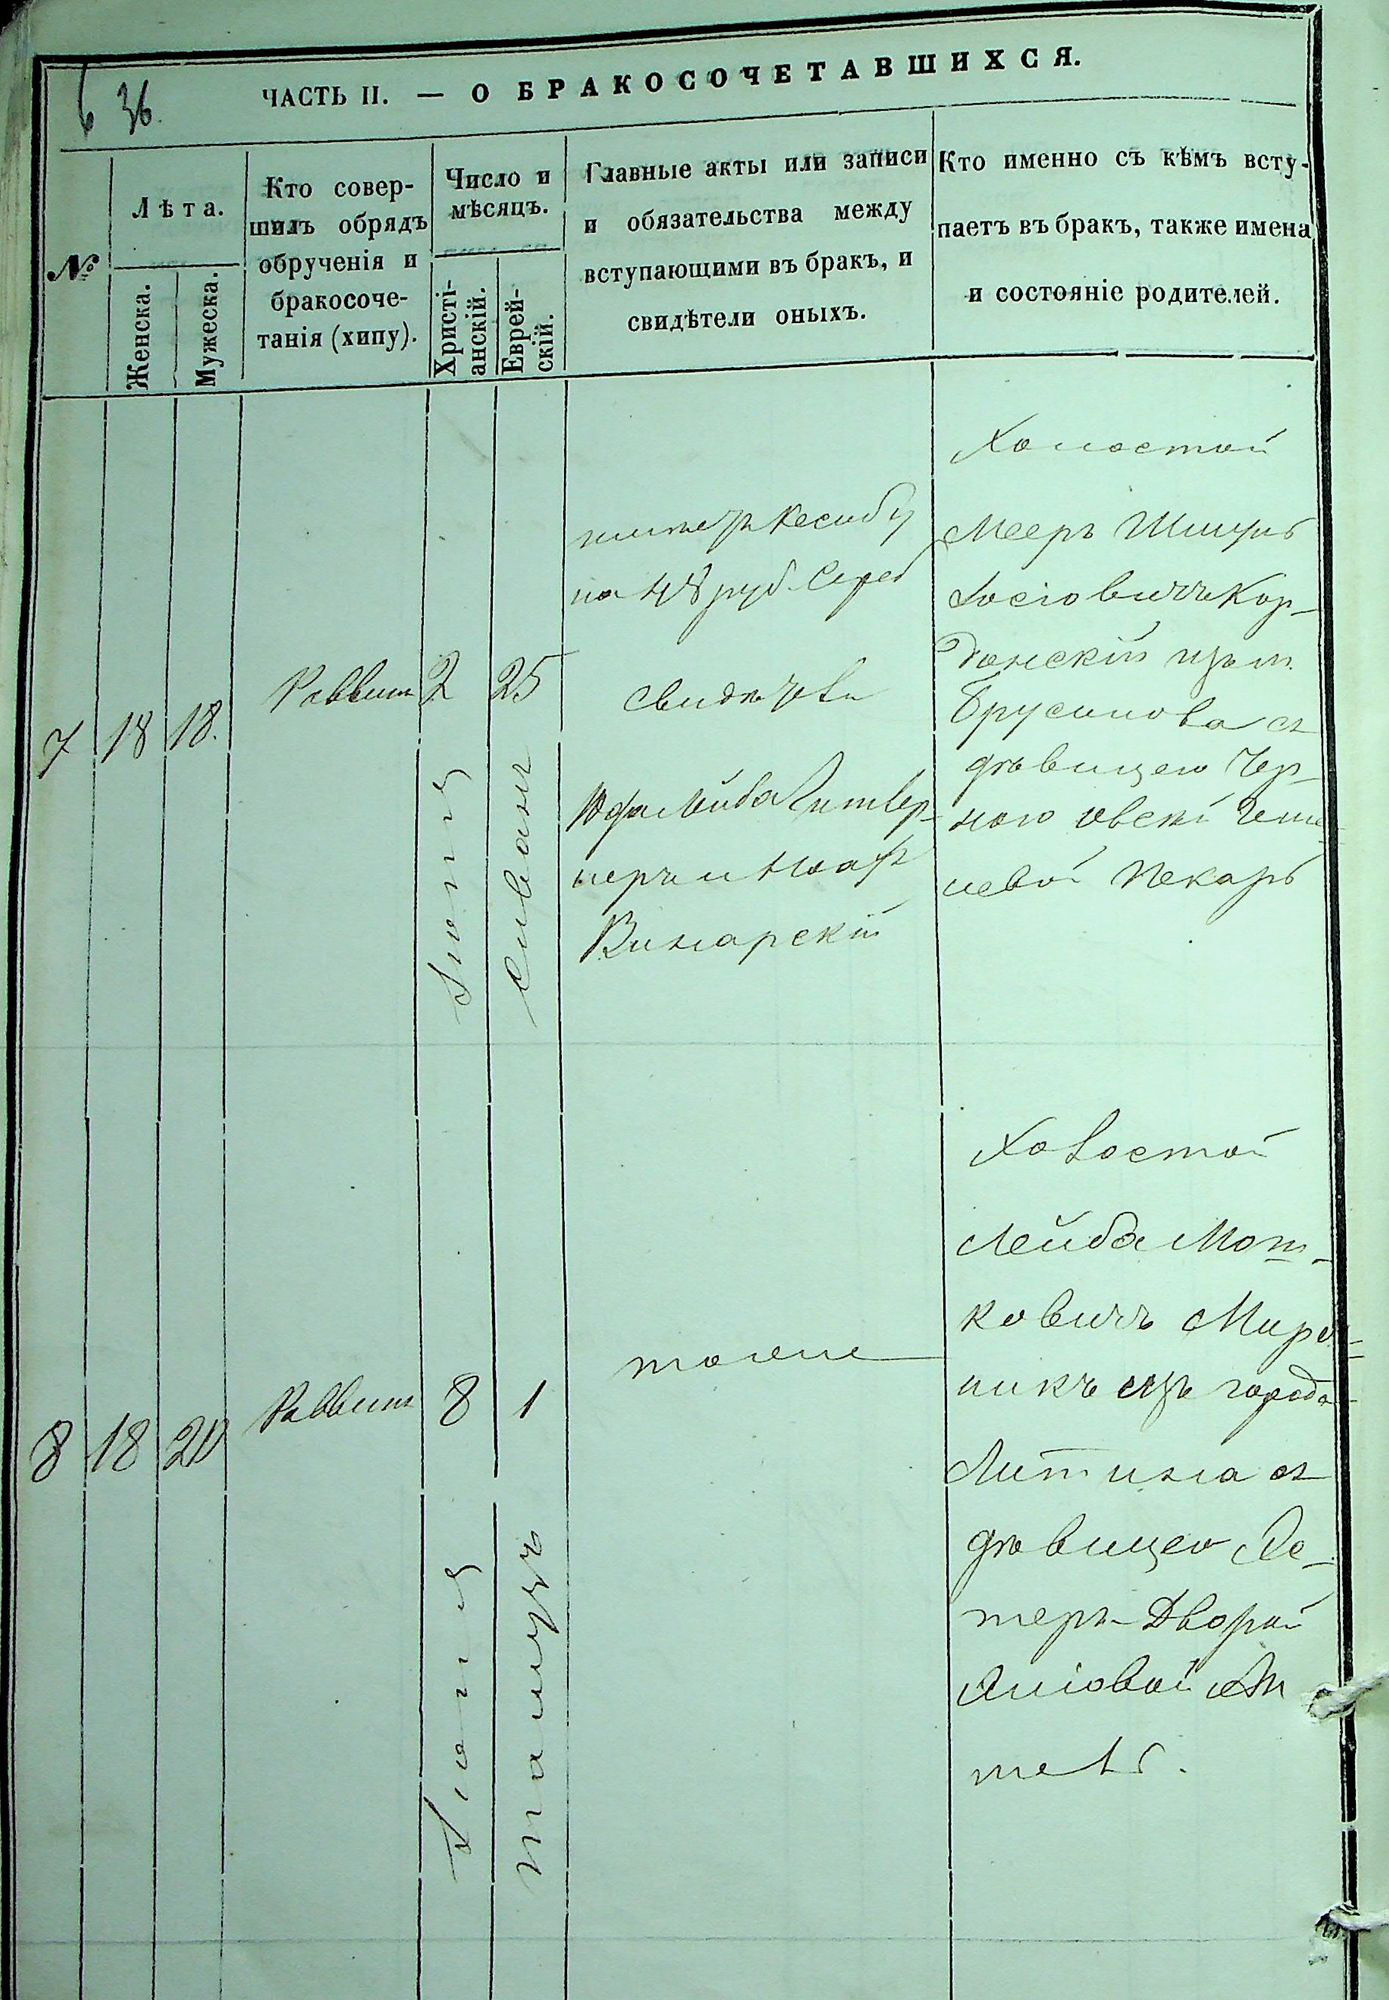 6 36.
ЧАСТЬ II. — О БРАКОСОЧЕТАВШИХСЯ.
№
Лѣта.
Женска.
Мужеска.
Кто совер-
шилъ обрядъ
обрученія и
бракосоче-
танія (хипу).
Число и
мѣсяцъ.
Христі-
анскій.
Еврей-
скій.
Главные акты или записи
и обязательства между
вступающими въ бракъ, и
свидѣтели оныхъ.
Кто именно съ кѣмъ всту-
паетъ въ бракъ, также имена
и состояніе родителей.
7
18
18.
Раввин
2
Іюня
25
Сиванъ
на 48 руб. Сереб
свидѣтели
Винарскій
Холостой
Мееръ Шмуль
Іосіовичъ Кор-
донскій изъ м.
Брусилова съ
дѣвицею Чер-
Пекарь
8
18
20
Раввин
8
Іюня
1
Тамузъ
тоже
Холостой
Лейба Мош-
ковичъ Миро
никъ изъ города
Литина съ
дѣвицею Эс-
теръ Дворой